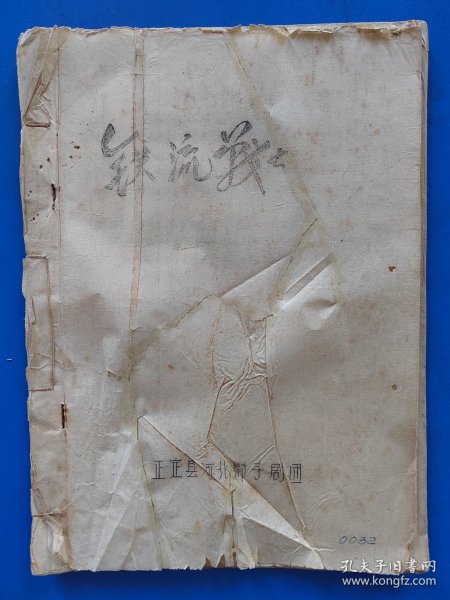 铁流战士
正定县河北梆子剧团
0032
孔夫子旧书网
www.kongfz.com